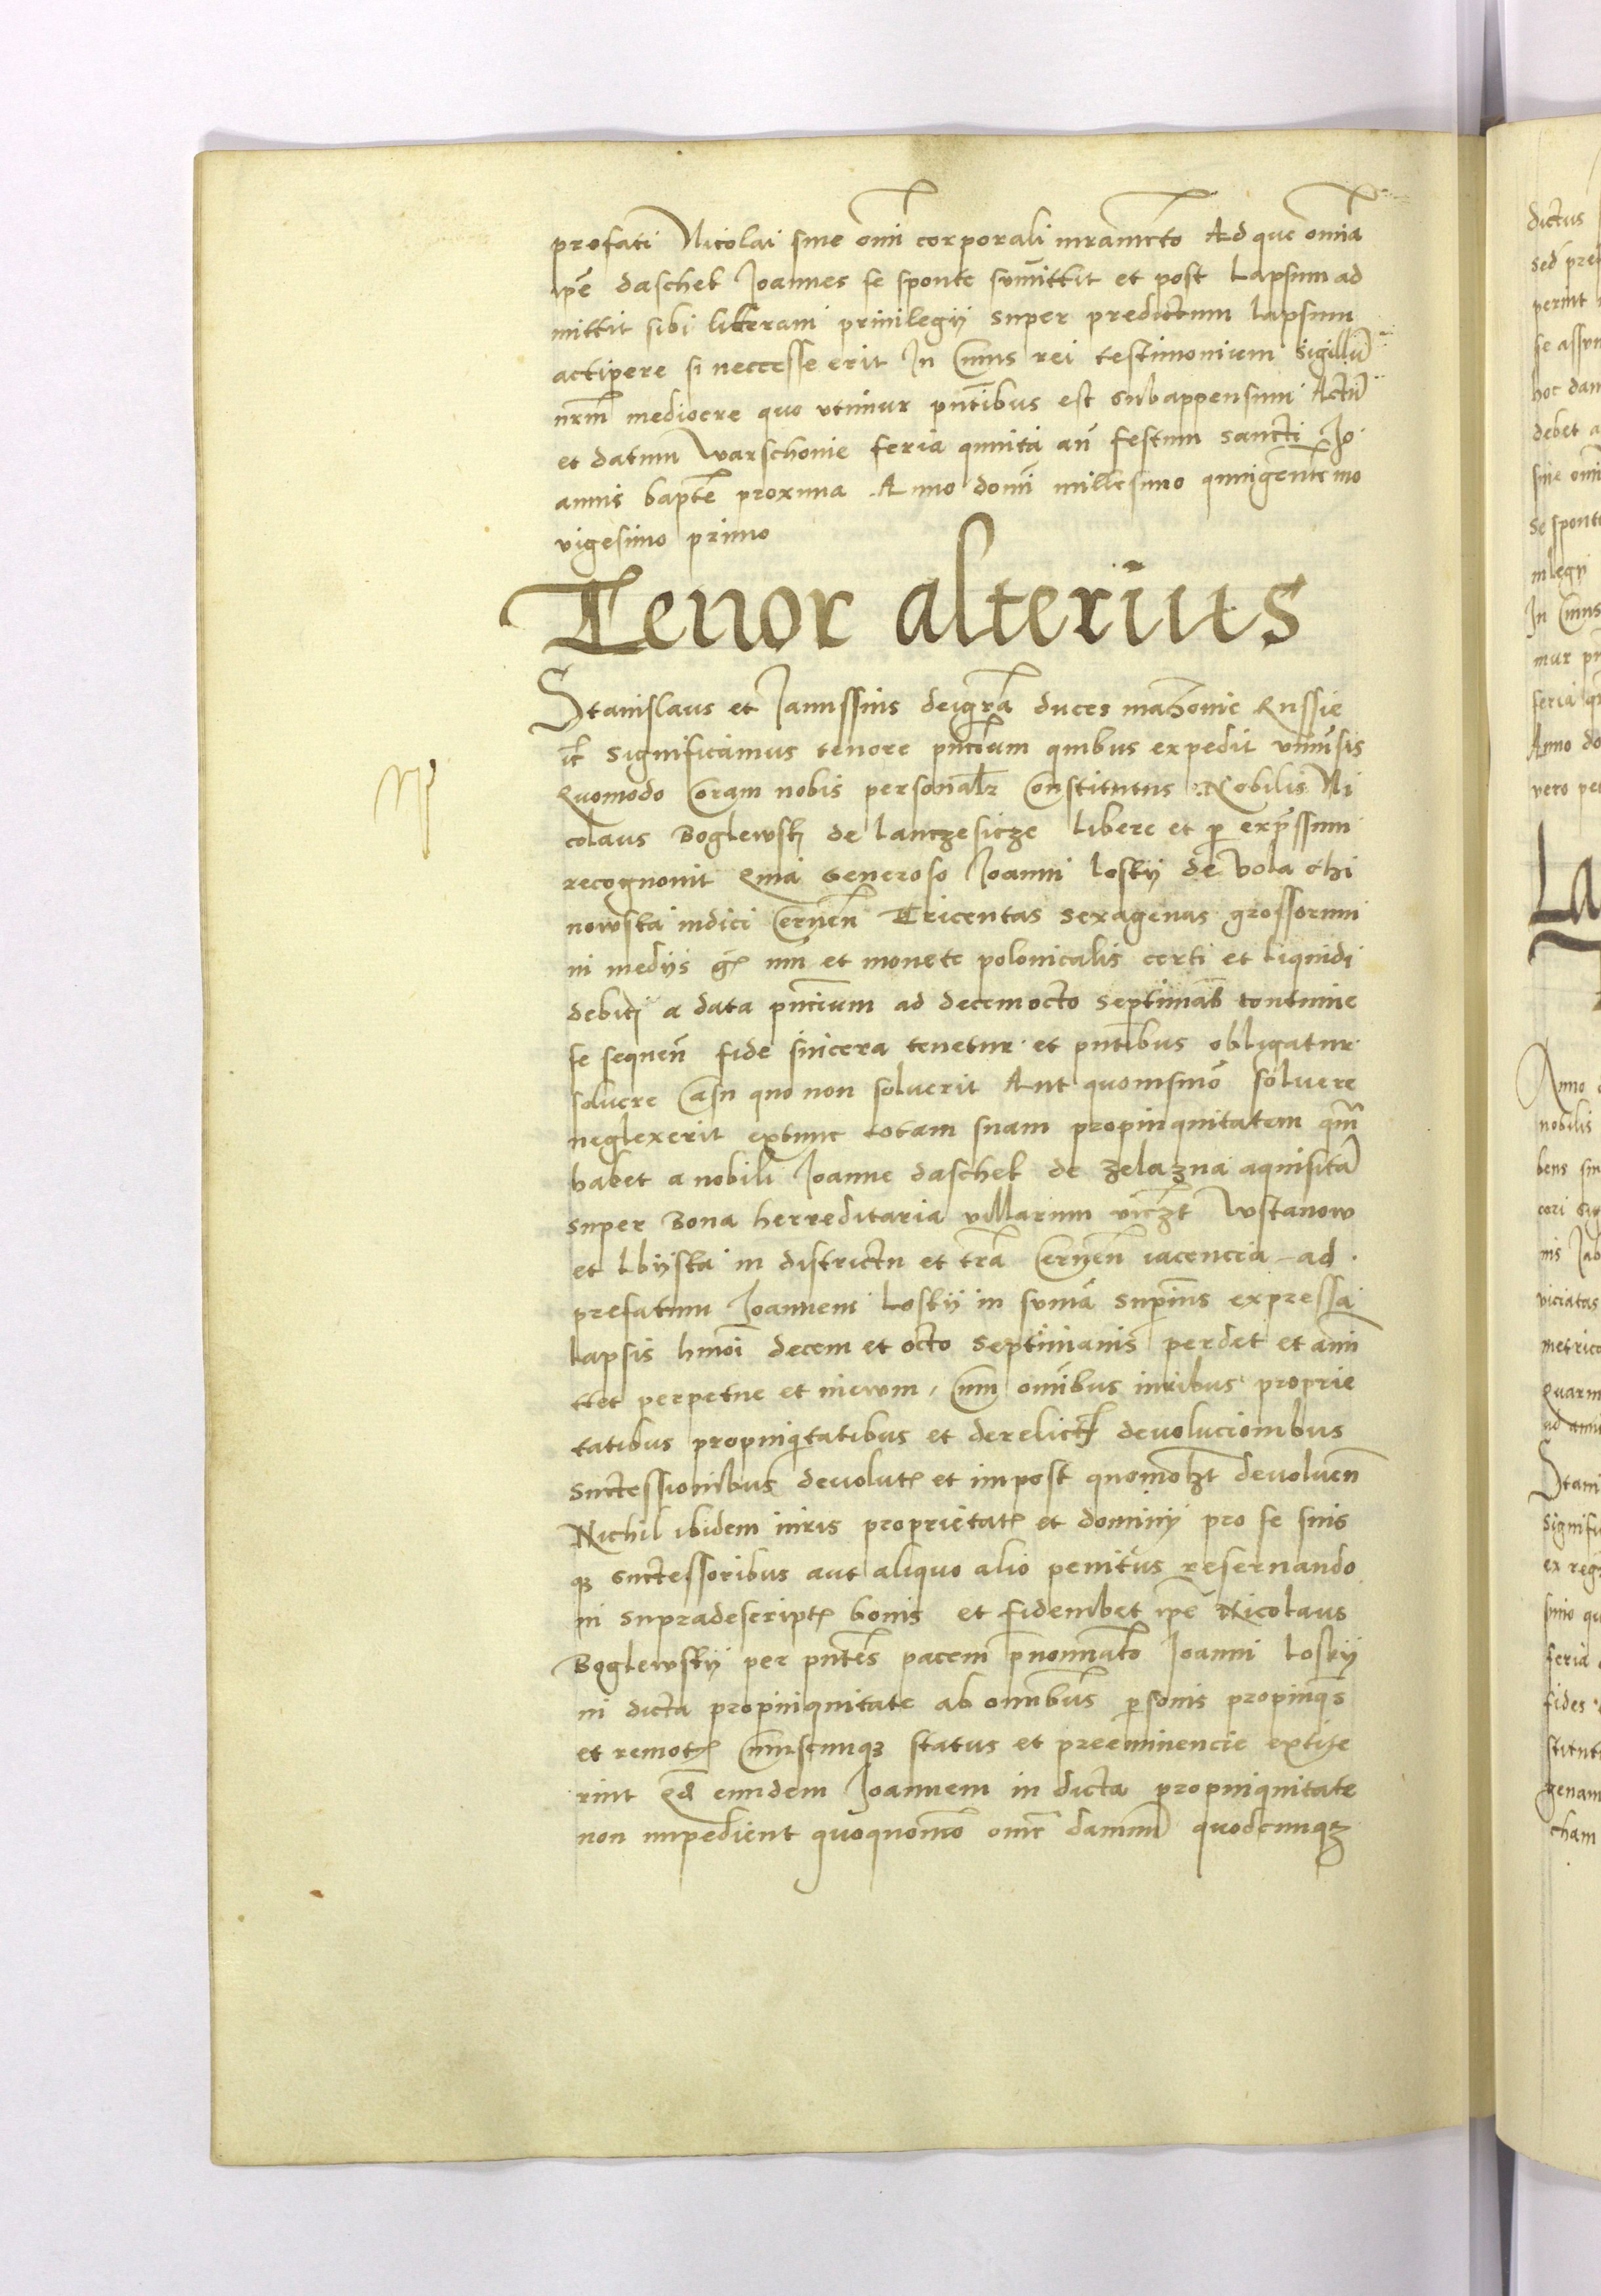 prefati Nicolai sine omī corporali iuramēto Ad que omīa
ipē daschek Joannes se sponte sumittit et post Lapsum ad
mittit sibi literam priuilegij super predictum lapsum
accipere si neccesse erit In Cuius rei testimonium Sigillū
nrm̄ mediocre quo vtimur pn̄tibus est subappensum Actū
et datum warschouie feria quinta an̄ festum sancti Jo
annis bapte proxima Anno domī millesimo quingentemo
vigesimo primo
Tenor alterius
Stanislaus et Janussius dei gr̄a duces mazouie Russie
et̄ significamus tenore pn̄cium quibus expedit vniūsis
Quomodo Coram nobis personalr Constitutus Nobilis Ni
colaus Boglewskj de lanczesicze libere et p exp̄ssum
recognouit Quia Generoso Joanni losky de vola chi
nowska iudici Cernen̄ Tricentas sexagenas grossorum
in medijs gr nūi et monete polonicalis certi et liquidi
debiti a data pn̄cium ad decemocto septimas continue
se sequen̄ fide sincera tenetur et pn̄tibus obligatur
soluere Casu quo non soluerit Aut quouismō soluere
neglexerit extunc totam suam propinquitatem qm̄
habet a nobili Joanne daschek de zelazna aquisitā
super Bona herreditaria villarum viczt Wstanow
et Lbijska in districtu et tr̄a Cernen̄ iacencia ad
prefatum Joannem Losky in sumā superius expressa
lapsis hmōi decem et octo septimanis perdet et ami
ttet perpetue et in ewm Cum omībus iuribus proprie
tatibus propinqitatibus et derelictis deuolucionibus
successionibus deuolutis et impost quomōlzt deuoluen̄
Nichil ibidem iuris proprietatis et dominij pro se suis
qz successoribus aut aliquo alio penitus reseruando
in supradescriptis bonis et fideiubet ipē Nicolaus
Boglewsky per pn̄tes pacem p̄nominato Joanni losky
in dicta propinquitate ab omībus psonis propinqs
et remotis Cuiuscunqz status et preeminencie extite
rint Qd eundem Joannem in dicta propinquitate
non impedient quoquomō omē damnū quodcunqz